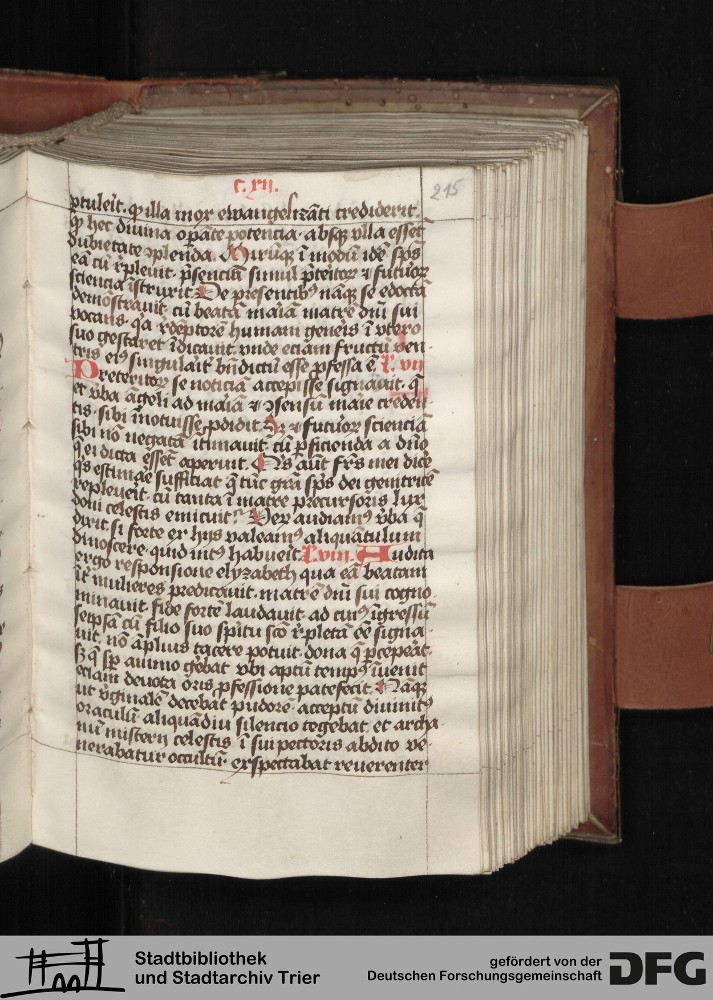 c. xii.
215
ptuleit. qͥ illa mox ewangelizāti crediderit.
qꝫ hec diuina opāte potencia. absqꝫ vlla esset
dubietate ꝯplenda. Mirūqꝫ ī modū idē sp̄s
eā cū rͤpleuit. p̄senciū simul p̄teritoꝝ ⁊ futuroꝝ
sciencia īstruxit. De presentibꝰ nāqꝫ se edoctā
demōstrauit. cū beatā maīā matrē dn̄i sui
vocans. qͥa rͤdeptorē humani generis ī vtero
suo gestaret īdicauit. vnde eciam fructū ven
tris eiꝰ singularit̄ bn̄dictū esse ꝓfessa ē. l. vii
Preteritoꝝ se noticiā accepisse signauit. qꝫ
et v̄ba āgeli ad maīā ⁊ ꝯsensū maīe creden
tis. sibi īnotuisse ꝓdidit. Sꝫ ⁊ futuroꝝ sciencia
sibi nō negatā ītimauit. cū ꝑficienda a dn̄o
q̄ ei dicta essēt aperuit. Qͥs aūt frs̄ mei dice
qͥs estimare sufficiat qͣ tūc grā sp̄s dei genitricē
repleuerit. cū tanta ī matre precursoris lux
doni celestis emicuit. Veꝝ audiamꝰ v̄ba q̄
dixit. si forte ex hijs valeamꝰ aliquātulum
dinoscere. quid intꝰ habuerit. l. viii. Audita
ergo responsione elyzabeth qua eā beatam
īt̄ mulieres predicauit. matrē dn̄i sui cogno
minauit. fide fortē laudauit. ad cuiꝰ īgressū
seipsā cū filio suo spiritu scō rͤpletā eē signa
uit. nō āpliꝰ tacere potuit. dona q̄ ꝑcepeāt.
sꝫ qͤ sp̄ animo gēbat vbi aptū tempꝰ īuenit
eciam deuota oris ꝓfessione patefecit. Nāqꝫ
ut v̓ginalē decebat pudorē. acceptū diuinitꝰ
oraculū aliquādiu silencio tegebat. et archa
nū misterij celestis ī sui pectoris abdito ve
nerabatur occultū. expectabat reuerenter
Stadtbibliothek
und Stadtarchiv Trier
gefördert von der
Deutschen Forschungsgemeinschaft
DFG